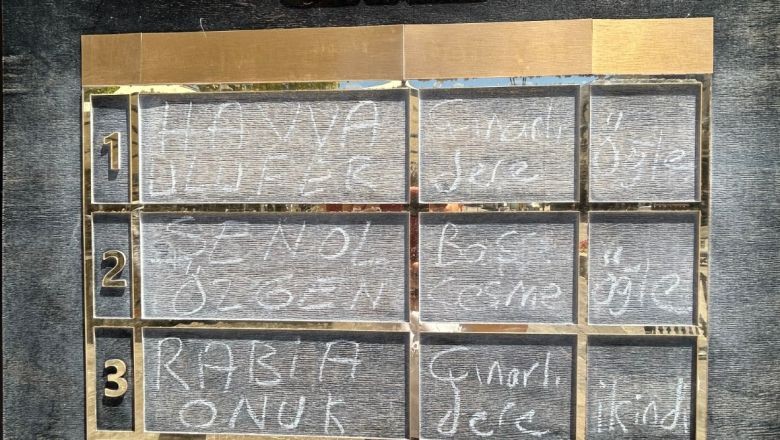 1
HAVVA
ULUFER
Çınarlı
dere
Öğle
2
ŞENOL
ÖZGEN
Boş
Çeşme
öğle
3
RABİA
ONUK
Çınarlı
dere
ikindi